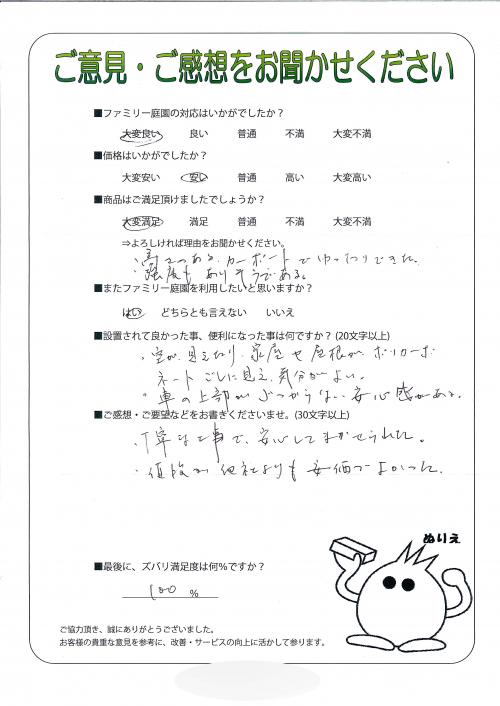 ご意見・ご感想をお聞かせください
■ファミリー庭園の対応はいかがでしたか？
大変良い 良い 普通 不満 大変不満
■価格はいかがでしたか？
大変安い 安い 普通 高い 大変高い
■商品はご満足頂けましたでしょうか？
大変満足 満足 普通 不満 大変不満
⇒よろしければ理由をお聞かせください。
・高さのある、カーポートでゆったりできた。
・強度もありそうである。
■またファミリー庭園を利用したいと思いますか？
はい どちらとも言えない いいえ
■設置されて良かった事、便利になった事は何ですか？(20文字以上)
・空が見えたり、家屋や屋根がポリカーボ
ネートごしに見え、気分がよい。
・車の上部がぶつからない安心感がある。
■ご感想・ご要望などをお書きくださいませ。(30文字以上)
・丁寧な工事で、安心してまかせられた。
・値段が他社よりも安価でよかった。
■最後に、ズバリ満足度は何%ですか？
100 %
ぬりえ
ご協力頂き、誠にありがとうございました。
お客様の貴重な意見を参考に、改善・サービスの向上に活かして参ります。